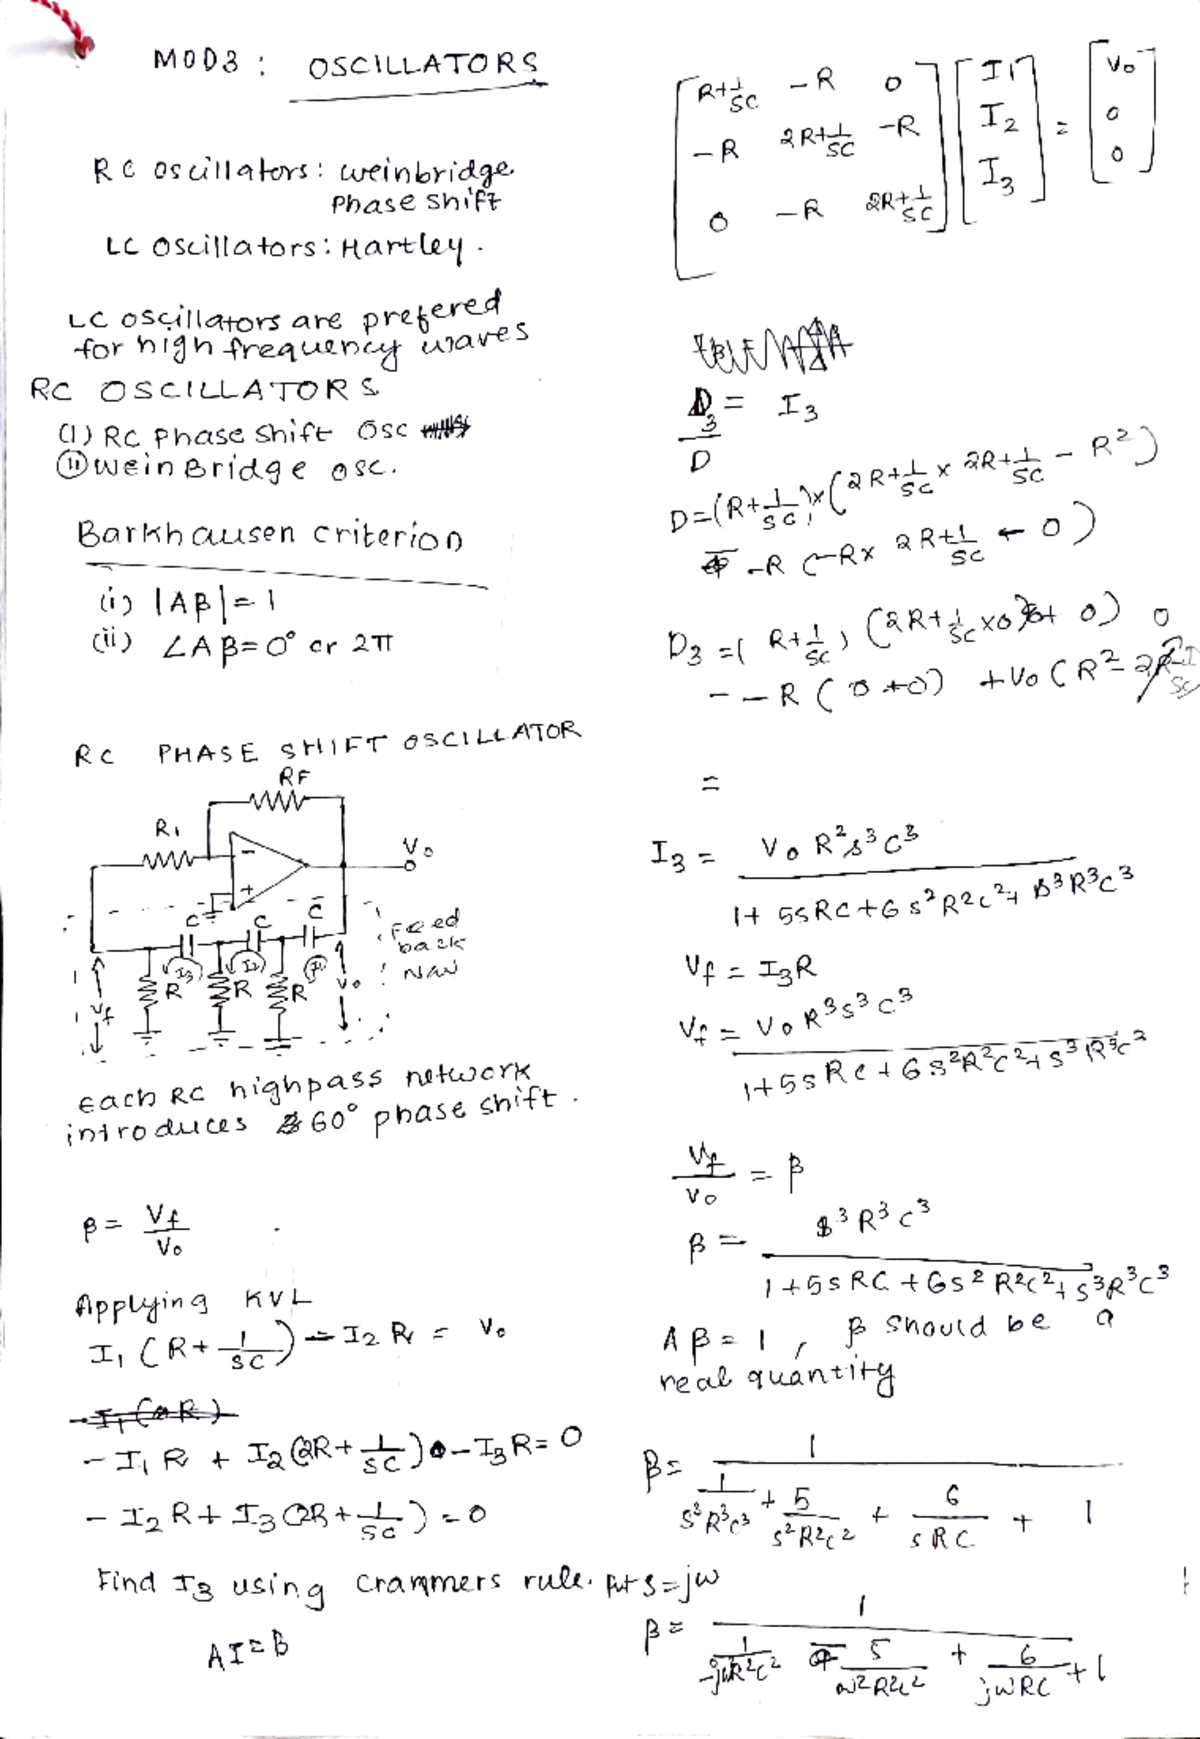 MOD3 : OSCILLATORS
RC oscillators : weinbridge
Phase shift
LC Oscillators : Hartley .
LC oscillators are prefered
for high frequency waves
RC OSCILLATORS
(1) RC Phase shift Osc
(ii) wein Bridge osc.
Barkhausen criterion
(i) |Aβ| = 1
(ii) ∠Aβ = 0° or 2π
RC PHASE SHIFT OSCILLATOR
RF
R1
Vo
- +
C C C
I3 I2 I1
R R R
Vf Vo
Feed
back
N/W
Each RC highpass network
introduces 60° phase shift .
β = Vf/Vo
Applying KVL
I1 (R + 1/SC) - I2 R = Vo
- I1 R + I2 (2R + 1/SC) - I3 R = 0
- I2 R + I3 (2R + 1/SC) = 0
Find I3 using crammers rule.
AI = B
[R+1/SC -R 0] [I1] [Vo]
[-R 2R+1/SC -R] [I2] = [0]
[0 -R 2R+1/SC] [I3] [0]
D3/D = I3
D = (R+1/SC) × (2R+1/SC × 2R+1/SC - R²)
-R (-R × 2R+1/SC - 0)
D3 = (R+1/SC) (2R+1/SC × 0 + 0) 0
- -R (0+0) + Vo (R²
=
I3 = Vo R² s³ C³ / 1 + 5sRC + 6s²R²C² + s³R³C³
Vf = I3 R
Vf = Vo R³ s³ C³ / 1 + 5sRC + 6s²R²C² + s³R³C³
Vf/Vo = β
β = s³R³C³ / 1 + 5sRC + 6s²R²C² + s³R³C³
Aβ = 1 , β should be a
real quantity
β = 1 / 1/s³R³C³ + 5/s²R²C² + 6/sRC + 1
Put s = jω
β = 1 / 1/-jωR²C² - 5/ω²R²C² + 6/jωRC + 1